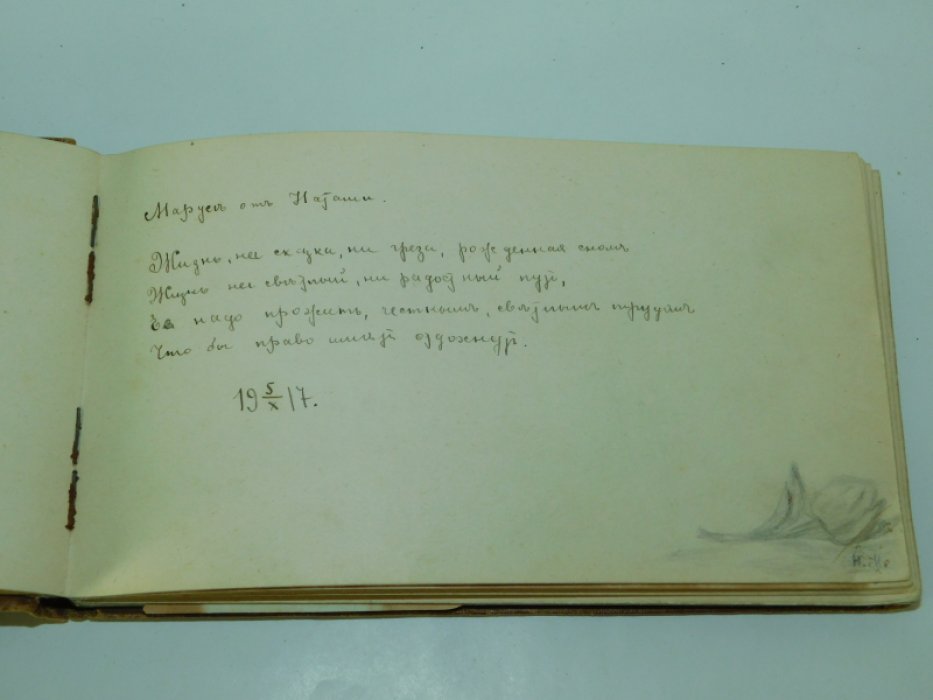 Марусѣ отъ Наташи.
Жизнь, не сказка, ни греза, рожденная сномъ
Жизнь не свѣтлый, ни радостный путь,
Ее надо прожить, честнымъ, свѣтлымъ трудомъ
Что бы право имѣть отдохнуть.
19 5/X 17.